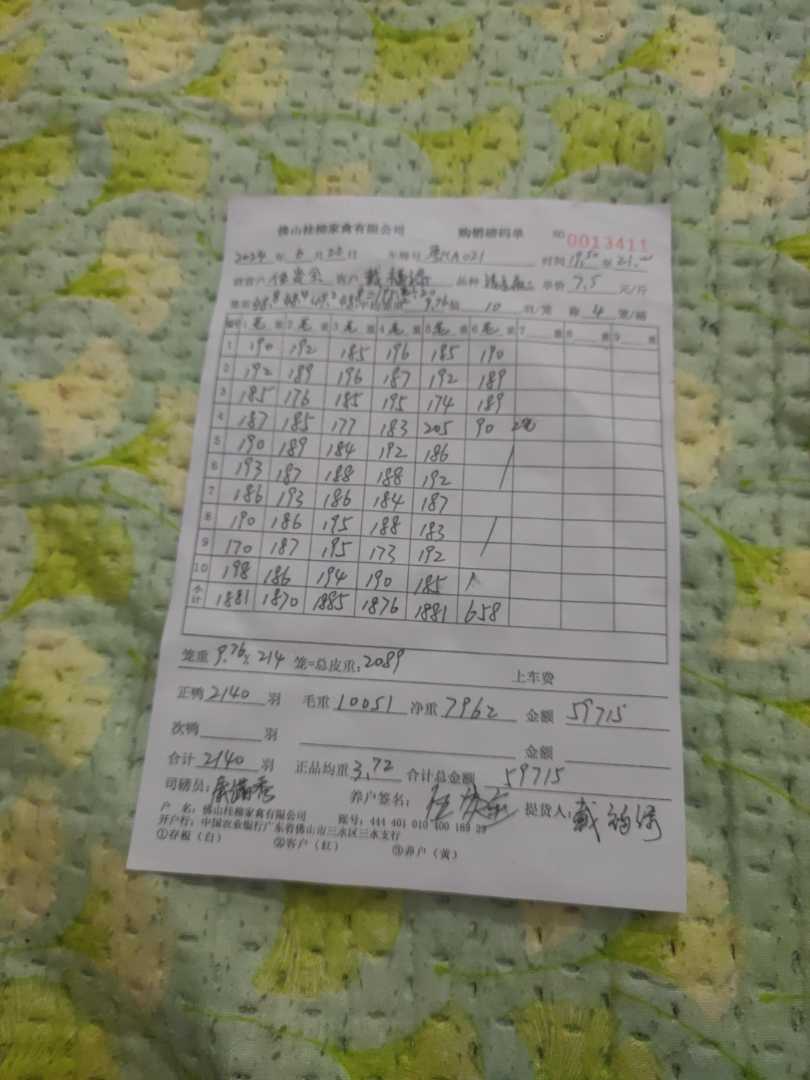 佛山桂柳家禽有限公司 购销磅码单 NO 0013411
2024 年 月 日 车牌号 A021 时间 19:50 至 21:00
客户 戴 品种 单价 7.5 元/斤
9.76 10 只/笼 称 4 笼/磅
编号 1 毛 重 2 毛 重 3 毛 重 4 毛 重 5 毛 重 6 毛 重 7 重 8 重 9 重
1 190 192 185 196 185 190
2 192 189 196 187 192 189
3 185 176 185 195 174 189
4 187 185 177 183 205 90
5 190 189 184 192 186
6 193 187 188 188 192
7 186 193 186 184 187
8 190 186 195 188 183
9 170 187 195 173 192
10 198 186 194 190 185
小计 1881 1870 1885 1876 1881 658
笼重 9.76 x 214 笼=总皮重: 2089 上车费
正鸭 2140 羽 毛重 10051 净重 7962 金额 59715
次鸭 羽 金额
合计 2140 羽 正品均重 3.72 合计总金额 59715
司磅员: 养户签名: 提货人: 戴
户 名: 佛山桂柳家禽有限公司 账号: 444 401 010 400 169 29
开户行: 中国农业银行广东省佛山市三水区三水支行
①存根(白) ②客户(红) ③养户(黄)